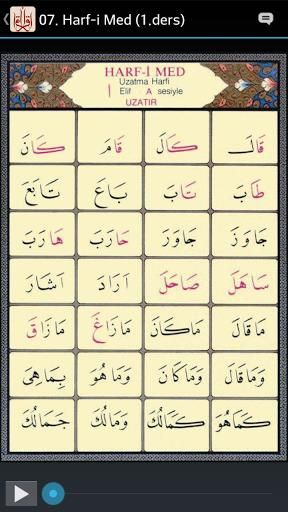 07. Harf-i Med (1.ders)
HARF-İ MED
Uzatma Harfi
ا Elif A sesiyle
UZATIR
قَالَ كَالَ قَامَ كَانَ
طَابَ تَابَ بَاعَ تَابَعَ
جَاوَزَ جَاوَرَ حَارَبَ هَارَبَ
سَاهَلَ صَاحَلَ اَرَادَ اَشَارَ
مَاقَالَ مَاكَانَ مَازَاغَ مَازَاقَ
وَمَاقَالَ وَمَاكَانَ وَمَاهُوَ بِمَاهِىَ
كَمَاهُوَ كَمَالُكَ وَمَالُكَ جَمَالُكَ